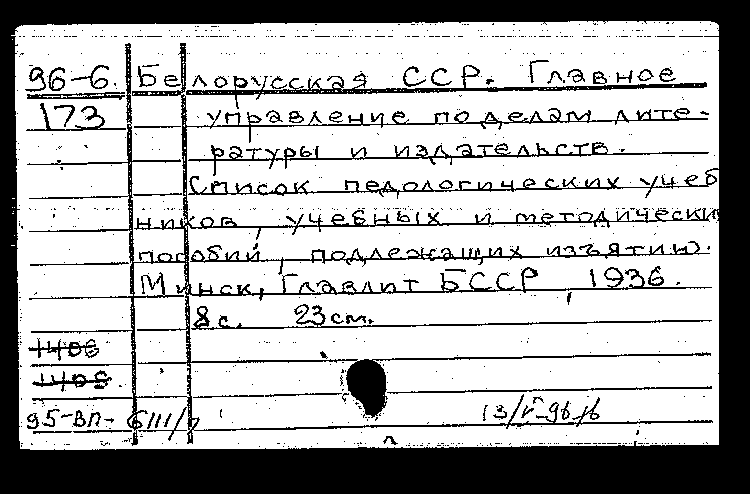 96-6. Белорусская ССР. Главное
173 управление по делам лите-
ратуры и издательств.
Список педологических учеб
ников, учебных и методически
пособий, подлежащих изъятию.
Минск, Главлит БССР, 1936.
8 с. 23 см.
1406
1405
95-ВП-